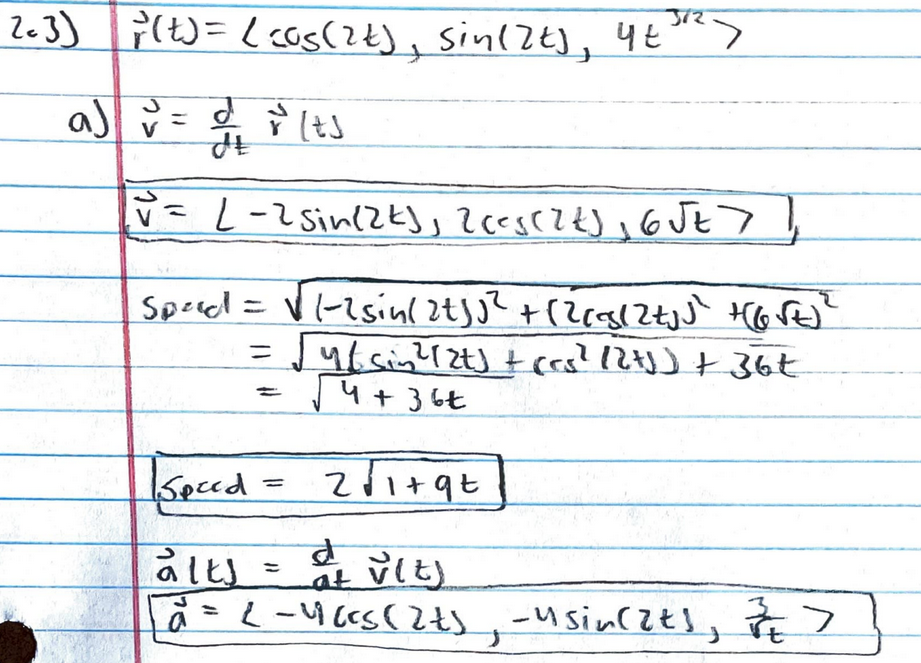 2.3) r⃗(t) = <cos(2t), sin(2t), 4t^3/2>
a) v⃗ = d/dt r⃗(t)
v⃗ = <-2sin(2t), 2cos(2t), 6√t>
speed = √((-2sin(2t))² + (2cos(2t))² + (6√t)²
= √(4(sin²(2t) + cos²(2t)) + 36t
= √(4 + 36t
Speed = 2√(1+9t
a⃗(t) = d/dt v⃗(t)
a⃗ = <-4cos(2t), -4sin(2t), 3/√t>